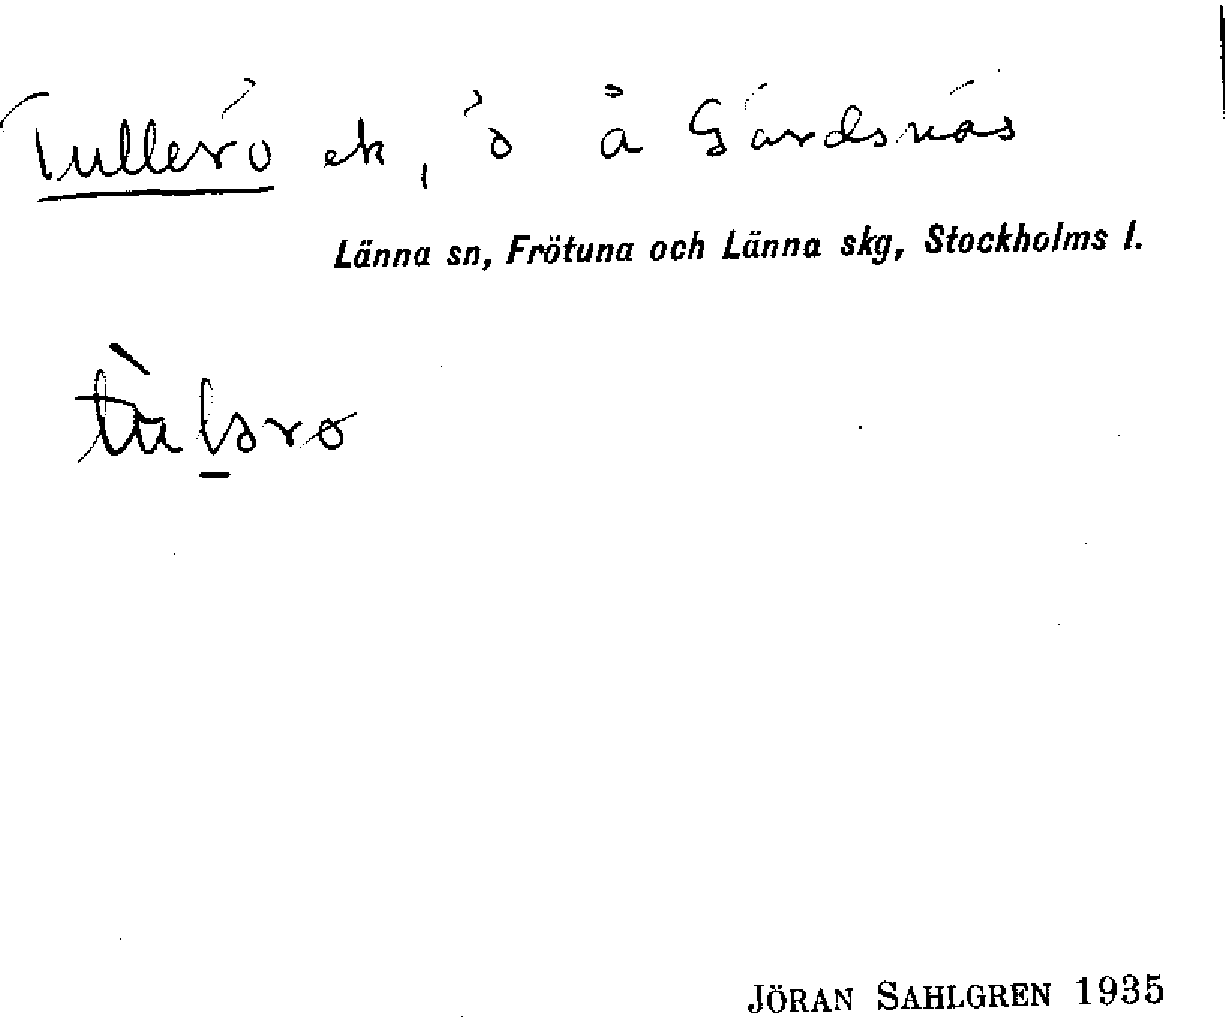 Tullerö ek, ö å Gärdsnäs
Länna sn, Frötuna och Länna skg, Stockholms l.
JÖRAN SAHLGREN 1935